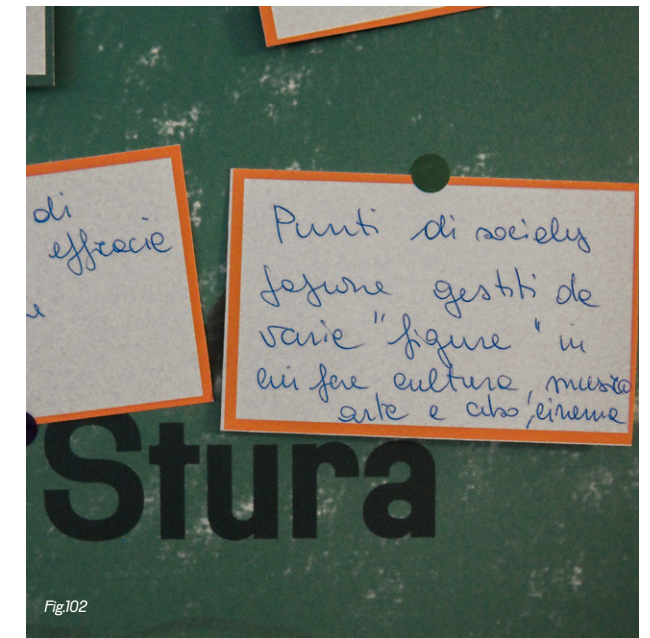 di
efficacie
Punti di society
gestiti da
varie "figure" in
cui fare cultura, musica
arte e cibo, cinema
Stura
Fig.102